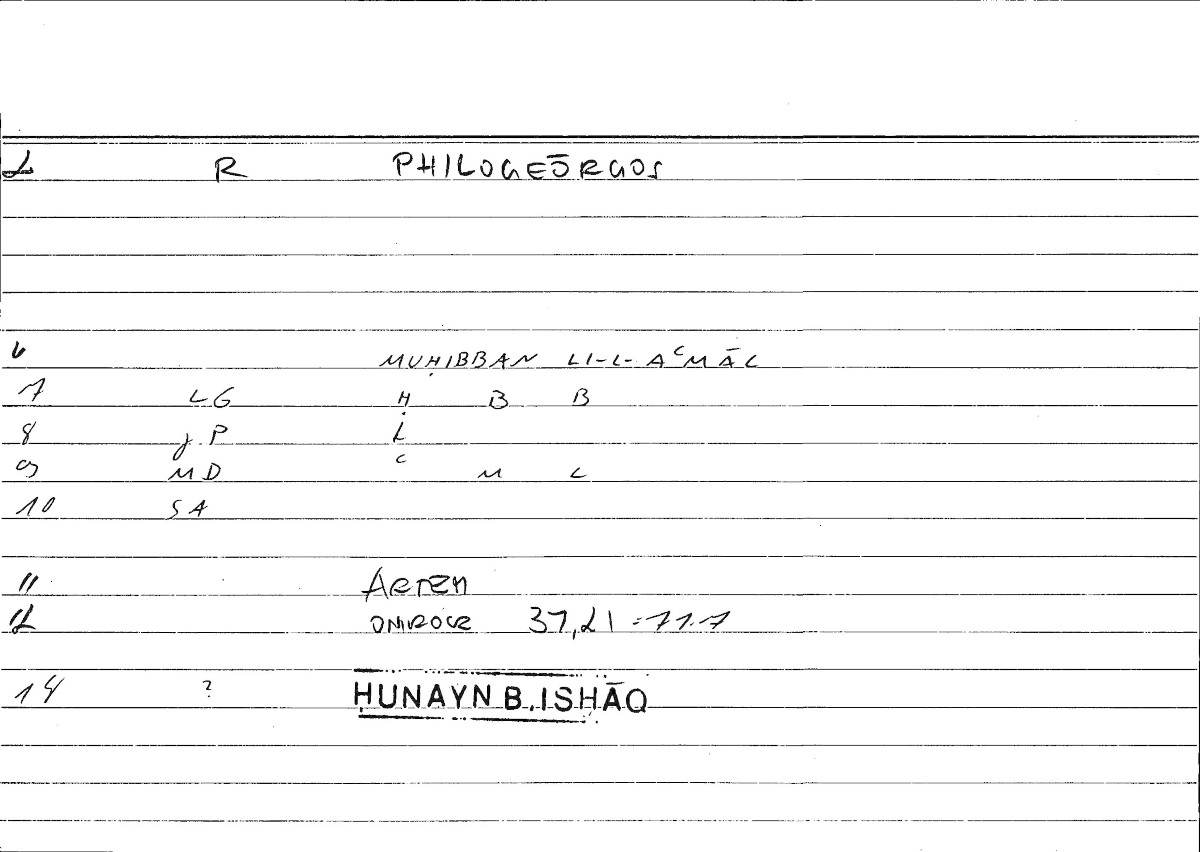 2 R PHILOGEŌRGOS
6 MUḤIBBAN LI-L-AᶜMĀL
7 LG Ḥ B B
8 g.P L
9 MD ᶜ M L
10 SA
11 ARTEM
12 ONIROCR 37,21 = 71.7
14 ? ḤUNAYN B. ISḤĀQ